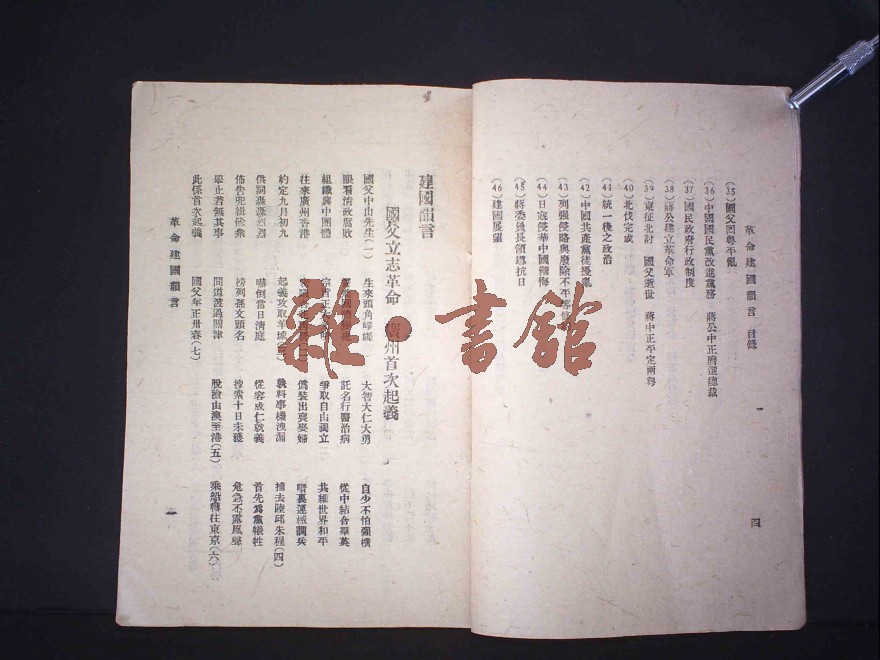 革命建國韻言 目錄
(35)國父回粵平亂
(36)中國國民黨改進黨務 蔣公中正膺選總裁
(37)國民政府行政制度
(38)蔣公建立革命軍
(39)東征北討 國父逝世 蔣中正平定兩粵
(40)北伐完成
(41)統一後之政治
(42)中國共產黨徒擾亂
(43)列强侵略與廢除不平等條約
(44)日寇侵華中國禦侮
(45)蔣委員長領導抗日
(46)建國展望
四
建國韻言
國父立志革命 廣州首次起義
國父中山先生(一) 生來頭角崢嶸 大智大仁大勇 自少不怕强橫
眼看清政腐敗 託名行醫治病 從中結合羣英
組織興中團體 爭取自由獨立 共維世界和平
往來廣州香港 偽裝出喪麥婦 暗裏運械調兵
約定九月初九 起義攻取羊城 孰料事機洩漏 捕去陸邱朱程(四)
供詞轟轟烈烈 嚇倒當日清庭 從容成仁就義 首先為黨犧牲
佈告兜緝餘衆 榜列孫文頭名 搜索十日未獲 危急不露風聲
舉止若無其事 間道渡過關津 脫險由澳至港(五) 乘船轉往東京(六)
此係首次起義 國父年正卅春(七)
革命建國韻言
一
雜·書館